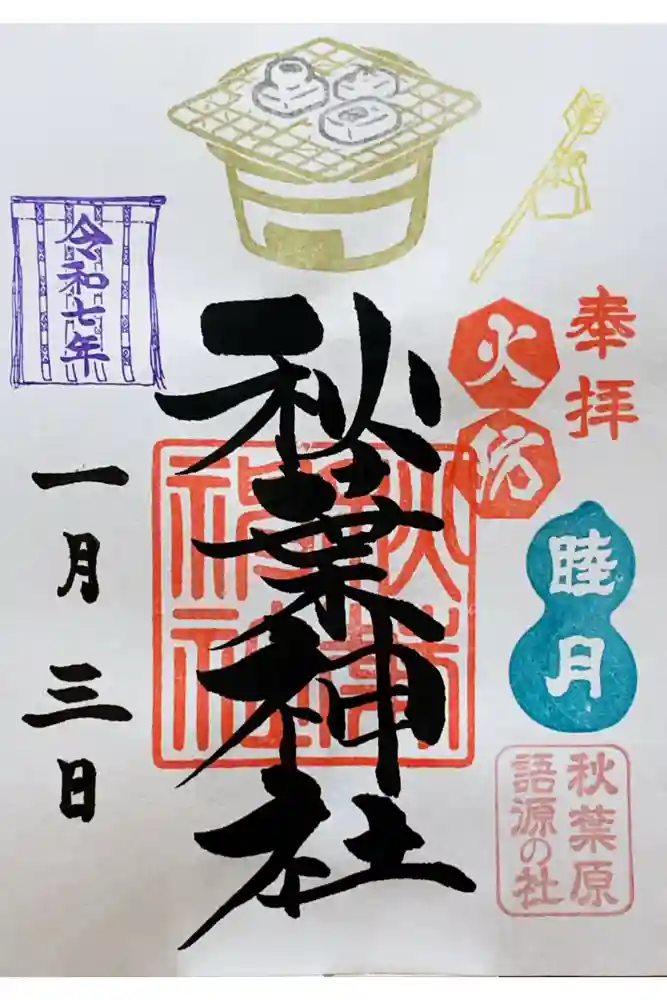 奉拝
火防
睦月
秋葉原
語源の社
秋葉神社
秋葉
神社
令和七年
一月三日